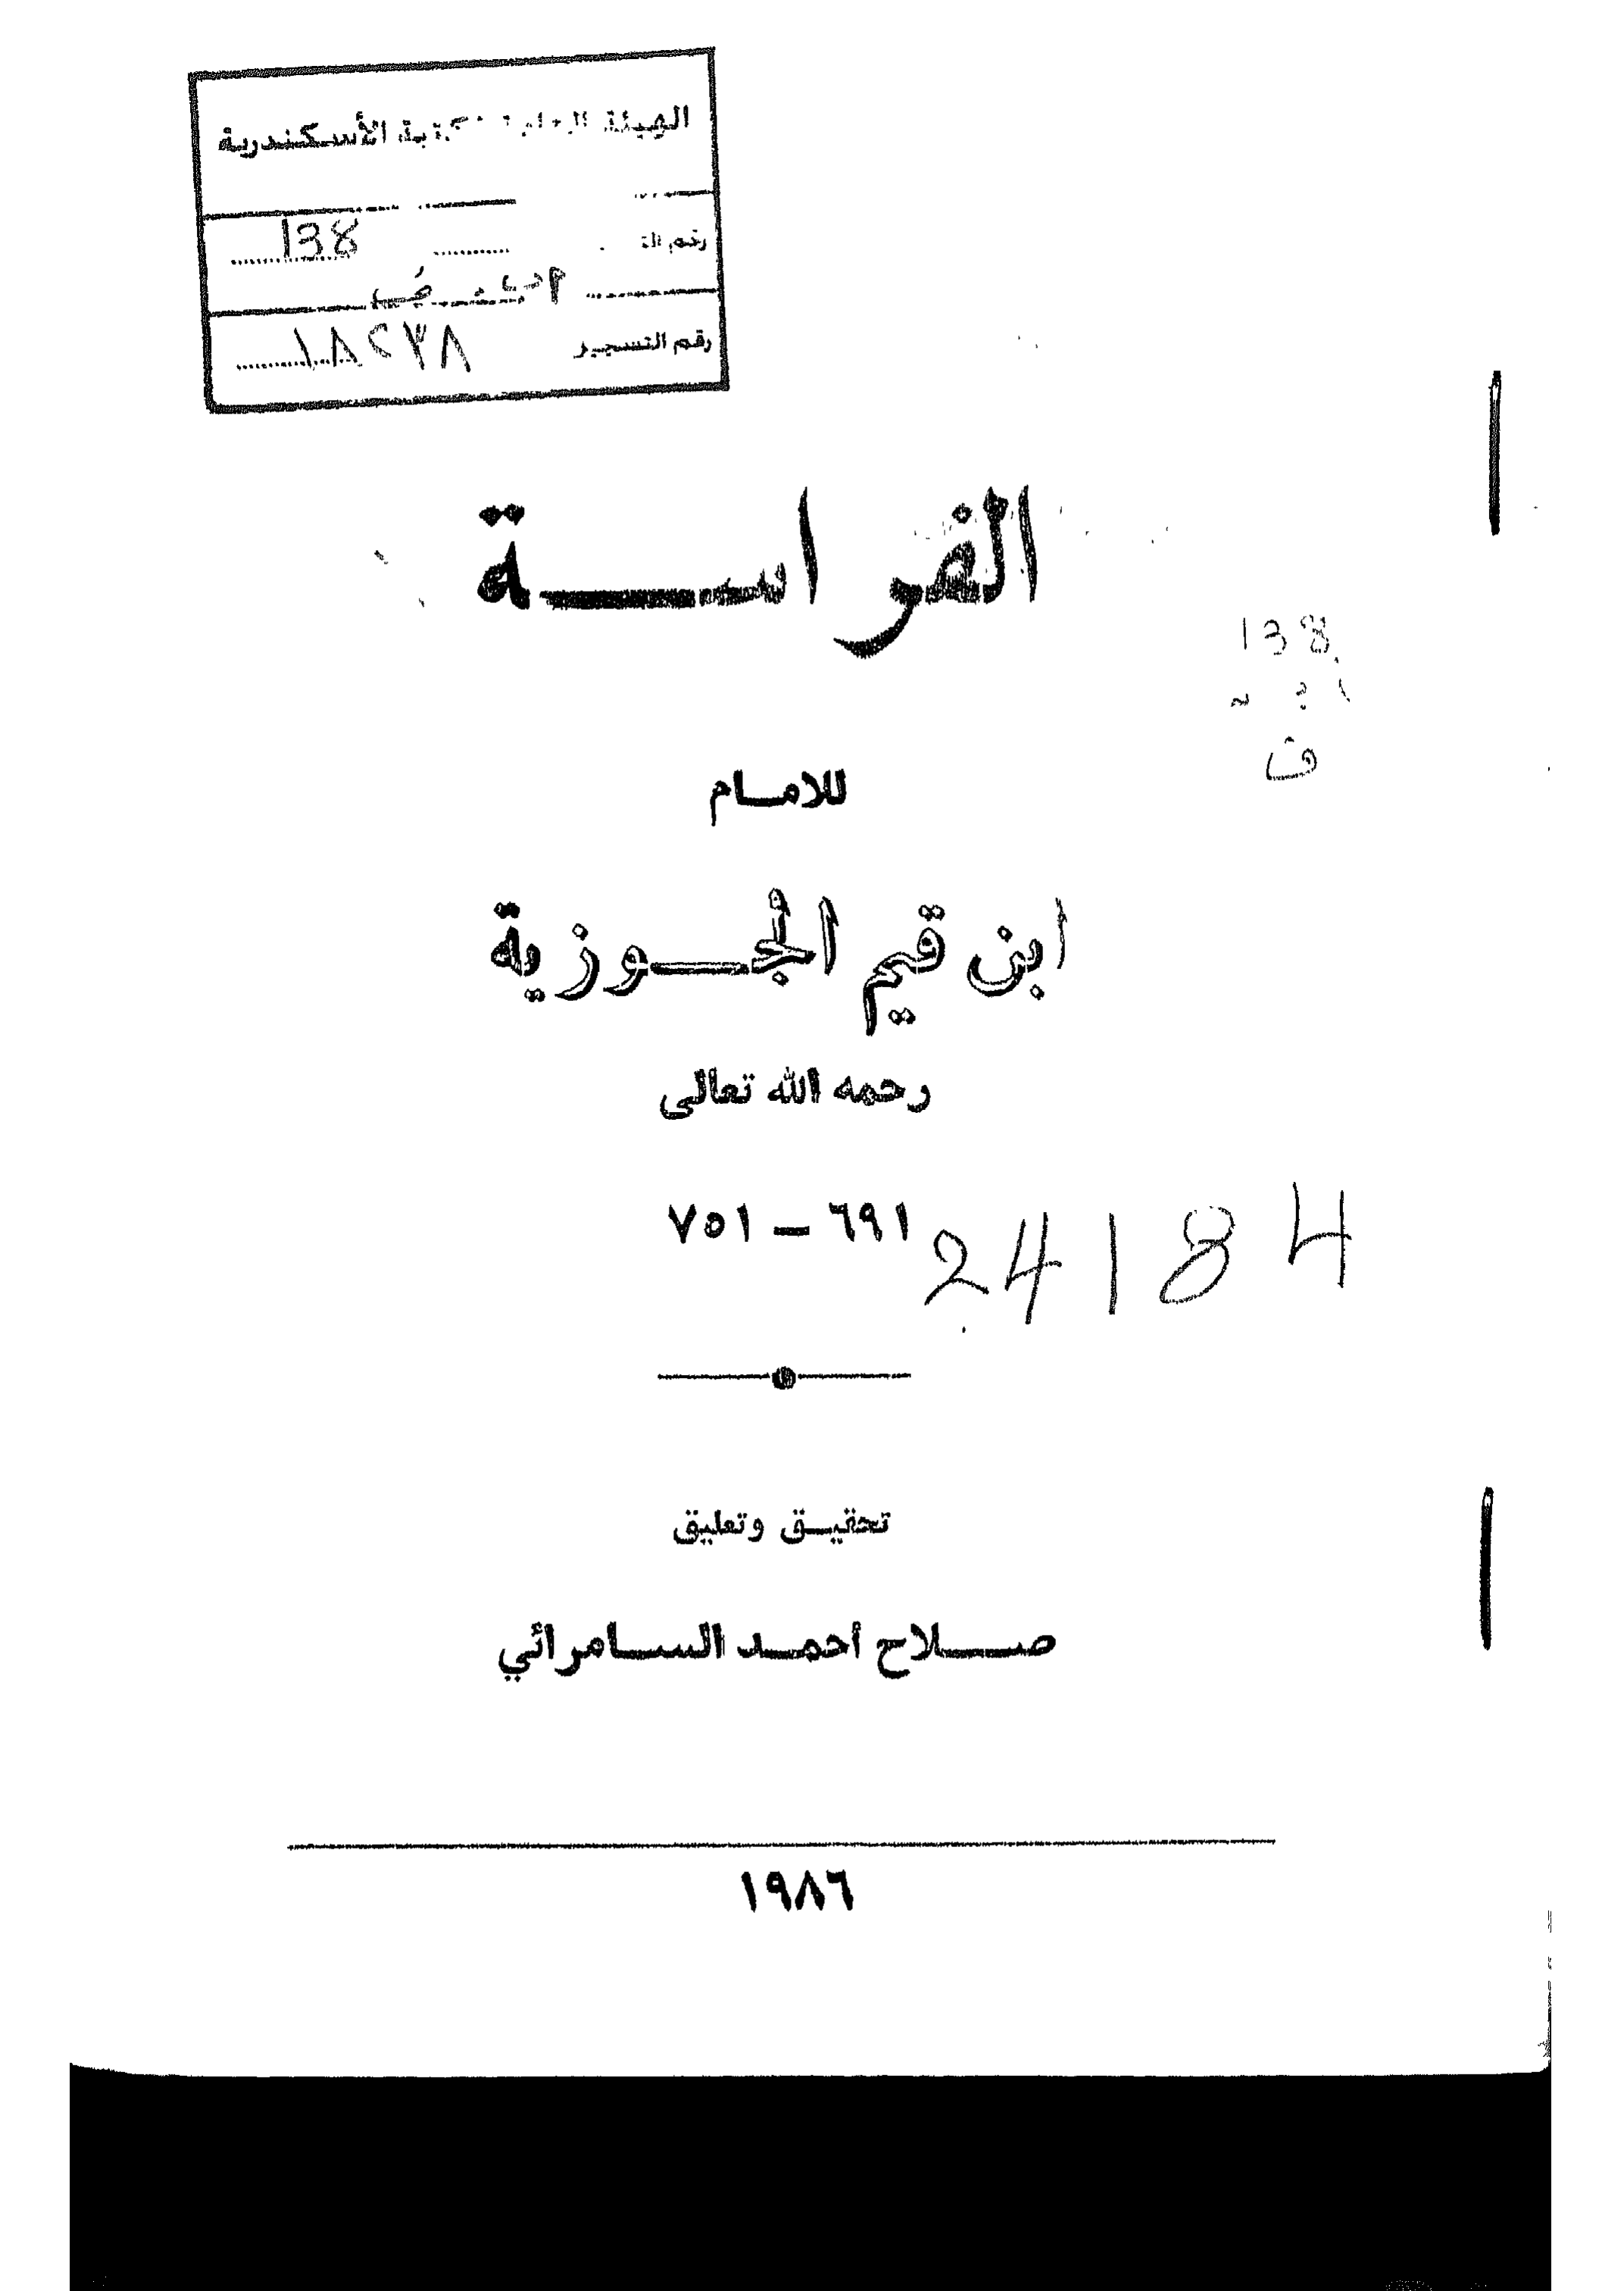 الهيئة العامة لمكتبة الأسكندرية
رقم 138
رقم التسجيل ١٨٢٣٨
الفراسة
138
ف
للامام
ابن قيم الجوزية
رحمه الله تعالى
٦٩١ - ٧٥١
24184
تحقيق وتعليق
صلاح أحمد السامرائي
١٩٨٦